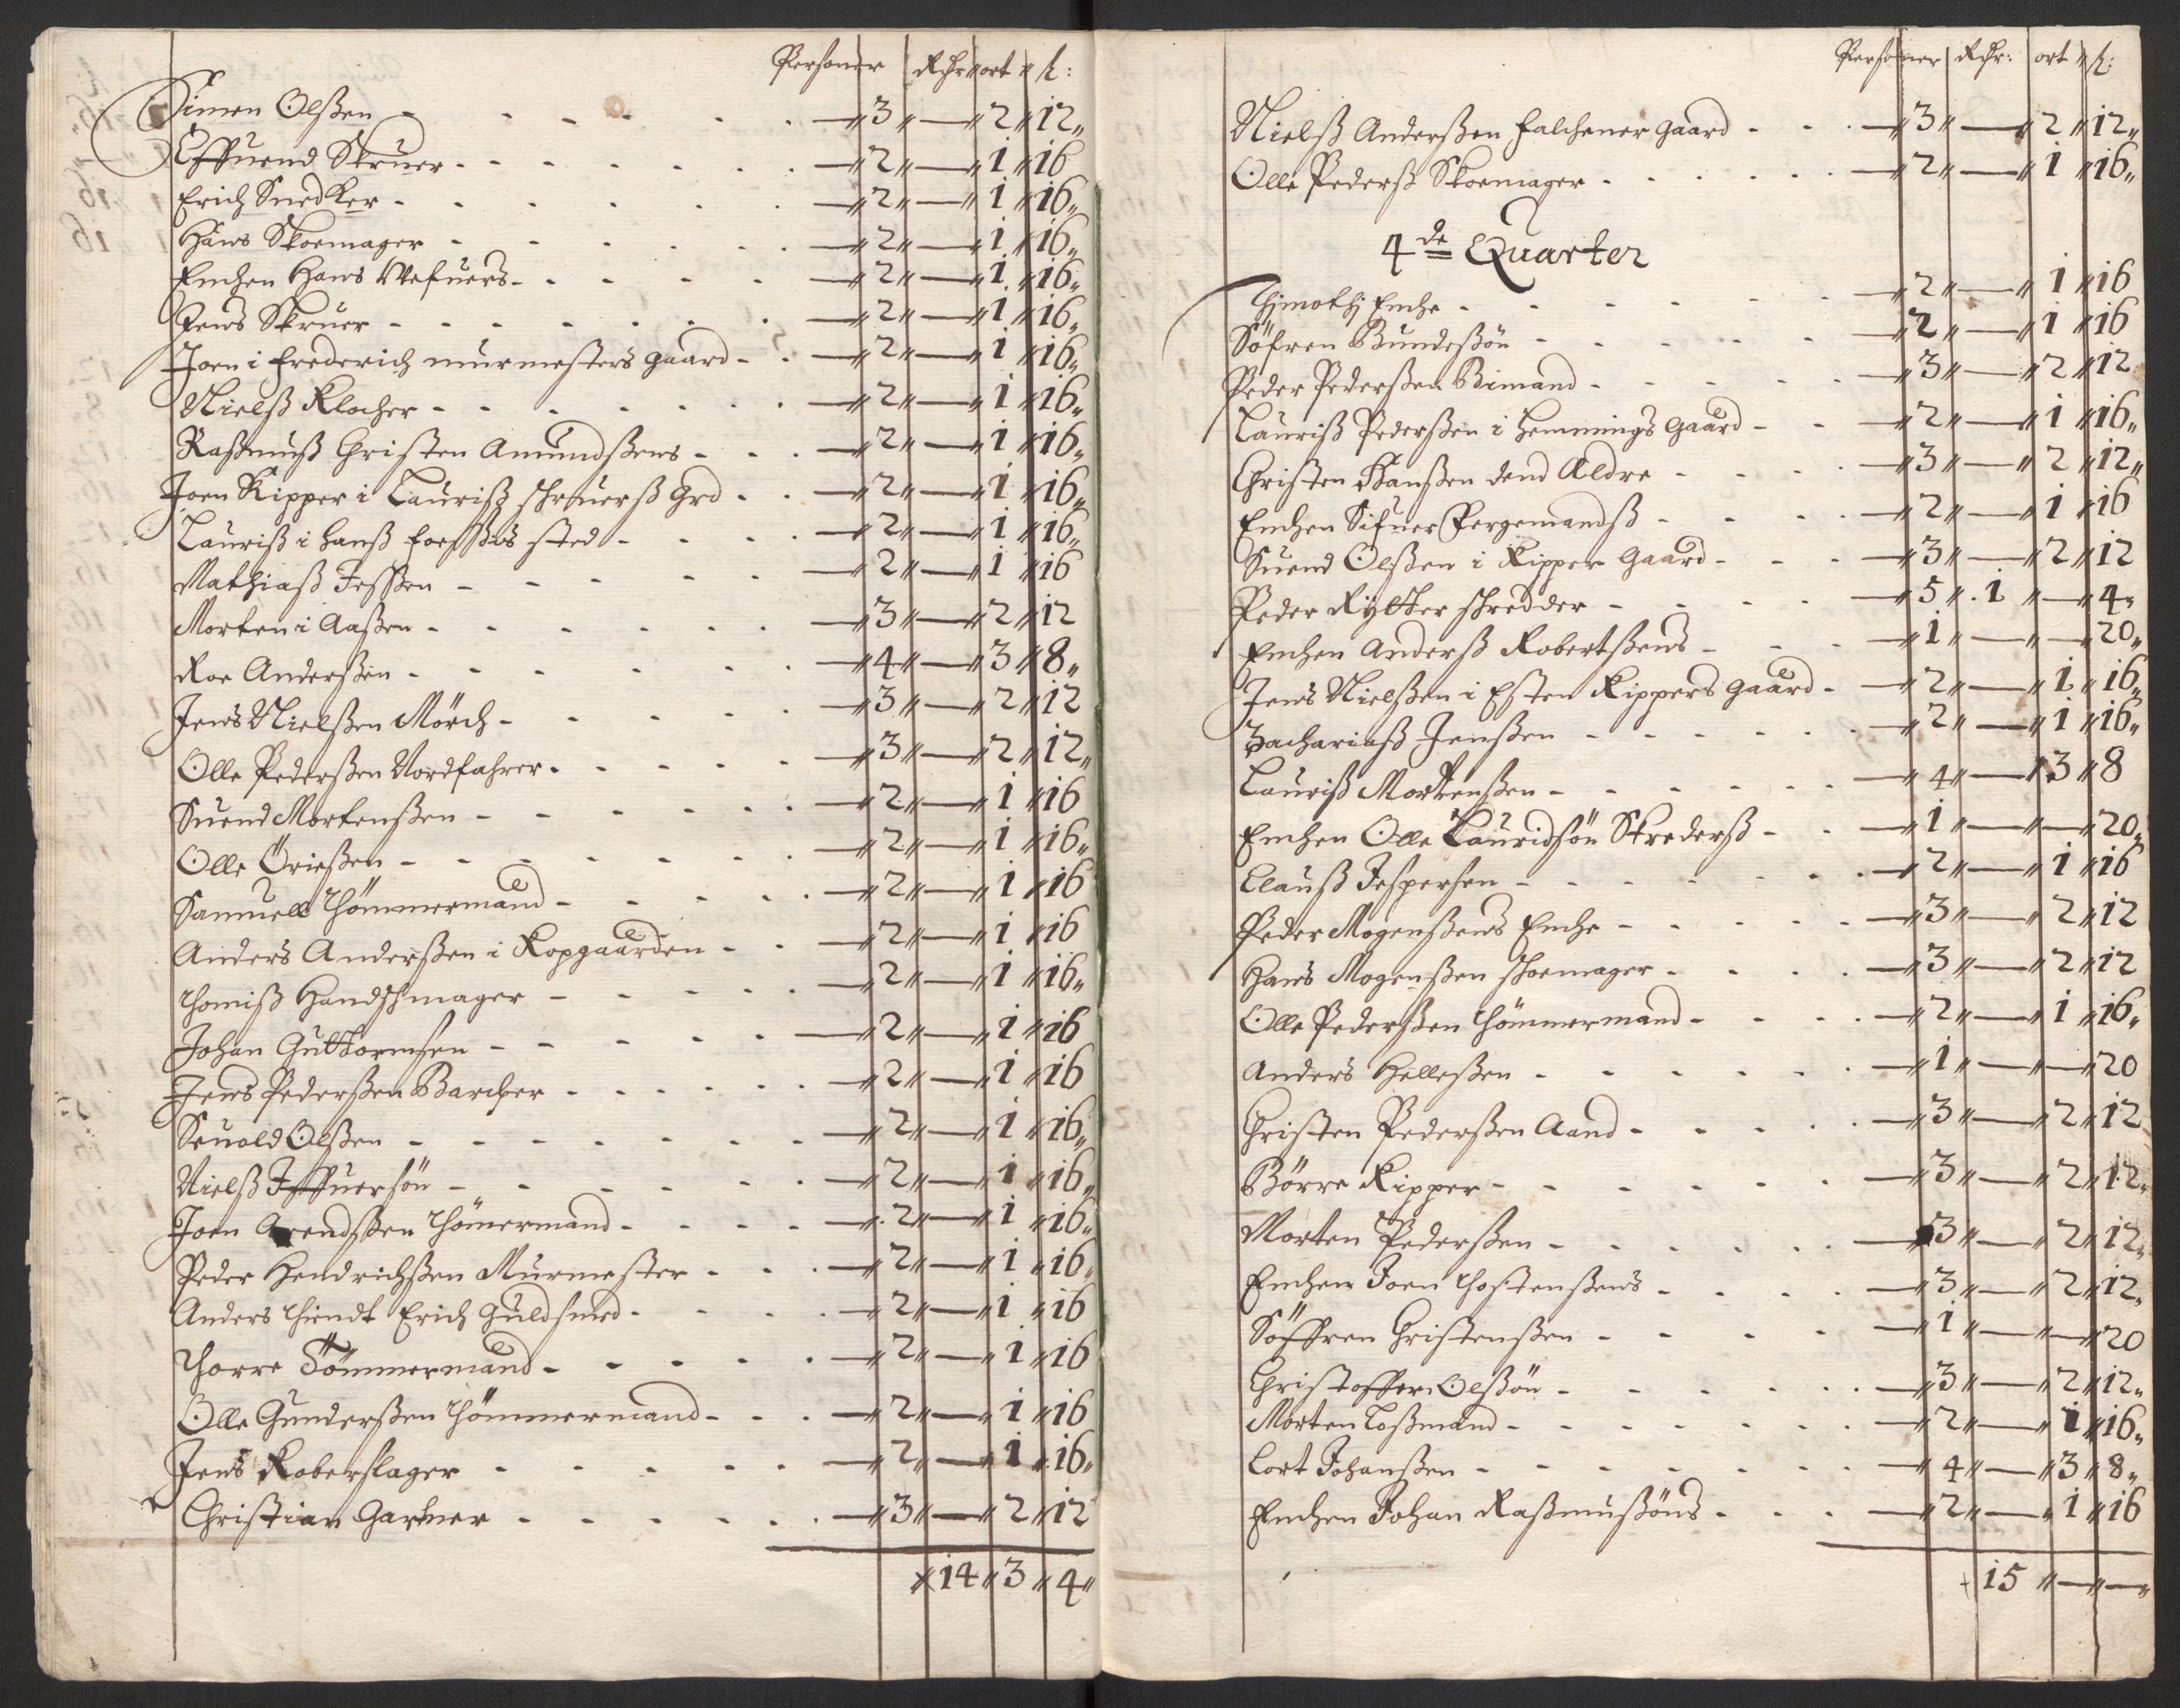 Personer Rdr ort ß:
Simen Olßen - 3 — 2 12
Effuend Skruer - 2 — 1 16
Erich Snedker - 2 — 1 16
Hans Skoemager - 2 — 1 16
Enchen Hans Wefuers - 2 — 1 16
Jens Skruer - 2 — 1 16
Joen i Frederich murmesters gaard - 2 — 1 16
Nielß Klocher - 2 — 1 16
Raßmuß Christen Amundßens - 2 — 1 16
Joen Kipper i Laurißz schruerß grd - 2 — 1 16
Lauriß i Hanß sted - 2 — 1 16
Mathiaß Jeßen - 2 — 1 16
Morten i Aaßen - 3 — 2 12
Roe Anderßen - 4 — 3 8
Jens Nielßen Mörch - 3 — 2 12
Olle Pederßen Nordfahrer - 3 — 2 12
Suend Mortenßen - 2 — 1 16
Olle Örießen - 2 — 1 16
Samuell Thömmermand - 2 — 1 16
Anders Anderßen i Kopgaarden - 2 — 1 16
Thomiß Handschmager - 2 — 1 16
Johan Guttormsen - 2 — 1 16
Jens Pederßen Barcher - 2 — 1 16
Seuold Olßen - 2 — 1 16
Nielß Iffuersön - 2 — 1 16
Joen Arendßen Thömermand - 2 — 1 16
Peder Hendrichßen Murmester - 2 — 1 16
Anders Thiendt Erich Guldsmed - 2 — 1 16
Thorre Tömmermand - 2 — 1 16
Olle Gunderßen Thömmermand - 2 — 1 16
Jens Koberslager - 2 — 1 16
Christian Gartner - 3 — 2 12
14 3 4
Personer Rdr: ort ß:
Nielß Anderßen Falchener gaard - 3 — 2 12
Olle Pederß Skoemager - 2 — 1 16
4de Quarter
Thimothj Enche - 2 — 1 16
Söfren Bundeßön - 2 — 1 16
Peder Pederßen Bimand - 3 — 2 12
Lauriß Pederßen i Hemmings gaard - 2 — 1 16
Christen Hanßen dend Ældre - 3 — 2 12
Enchen Sifuer Fergemandß - 2 — 1 16
Suend Olßen i Kipper gaard - 3 — 2 12
Peder Rytter schredder - 5 1 — 4
Enchen Anderß Robertßens - 1 — — 20
Jens Nielßen i Esten Kippers gaard - 2 — 1 16
Zachariaß Jenßen - 2 — 1 16
Lauriß Mortenßen - 4 — 3 8
Enchen Olle Lauridsön Skrederß - 1 — — 20
Clauß Jespersen - 2 — 1 16
Peder Mogenßens Enche - 3 — 2 12
Hans Mogenßen skoemager - 3 — 2 12
Olle Pederßen Thömmermand - 2 — 1 16
Anders Helleßen - 1 — — 20
Christen Pederßen Aand - 3 — 2 12
Börre Kipper - 3 — 2 12
Morten Pederßen - 3 — 2 12
Enchen Joen Thostenßens - 3 — 2 12
Söffren Christenßen - 1 — — 20
Christoffer Olßön - 3 — 2 12
Morten Loßmand - 2 — 1 16
Cort Johanßen - 4 — 3 8
Enchen Johan Raßmußöns - 2 — 1 16
15 — —